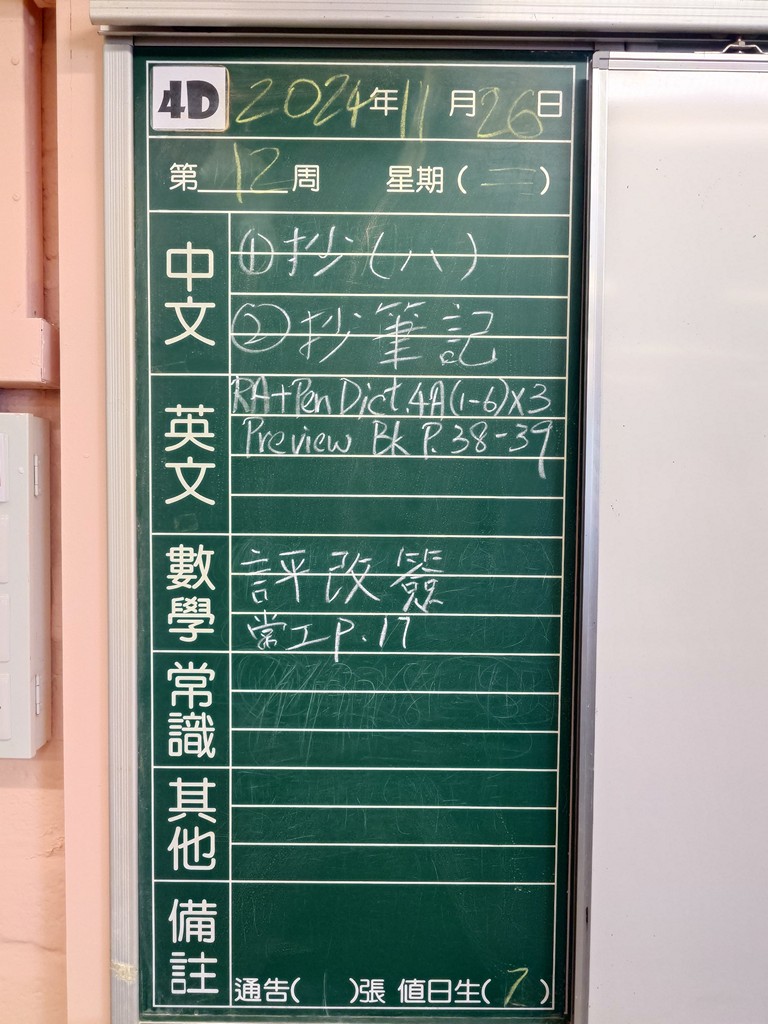 4D 2024年11月26日
第12周 星期(二)
中文
①抄(八)
②抄筆記
英文
RA+Pen Dict. 4A(1-6)x3
Preview Bk P. 38-39
數學
評改簽
常工p.17
常識
其他
備註
通告( )張 值日生(7)